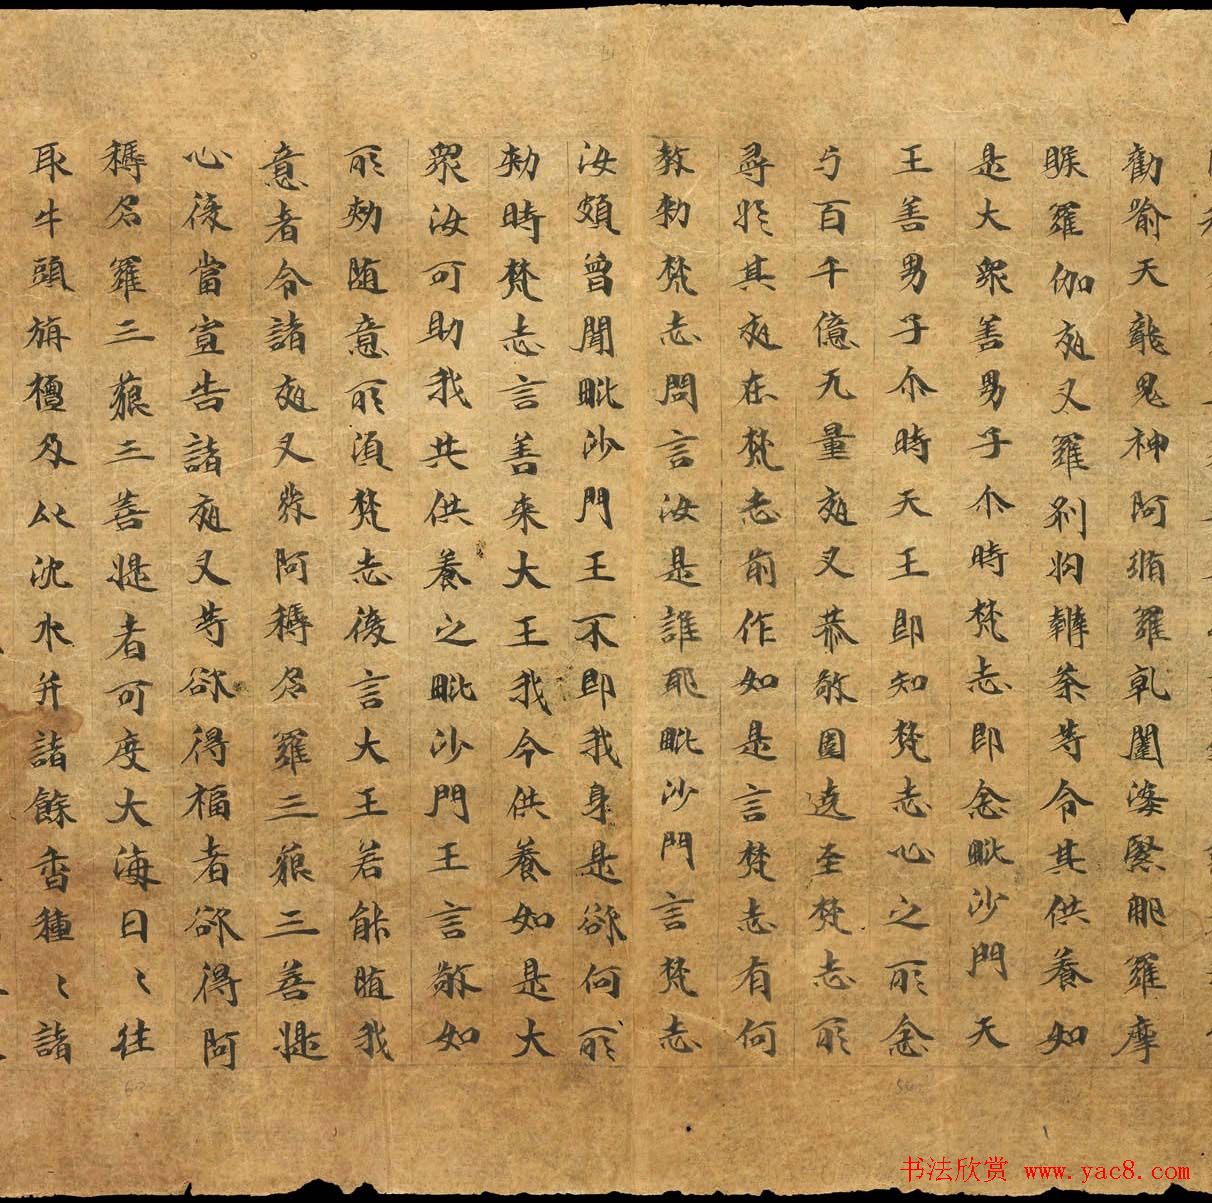 勸喻天龍鬼神阿脩羅乹闥婆緊那羅摩
睺羅伽夜叉羅刹拘辦荼等令其供養如
是大衆善男子尒時梵志即念毗沙門天
王善男子尒時天王即知梵志心之所念
与百千億无量夜叉恭敬圍遶至梵志所
尋於其夜在梵志前作如是言梵志有何
教勑梵志問言汝是誰耶毗沙門言梵志
汝頗曾聞毗沙門王不即我身是欲何所
勑時梵志言善来大王我今供養如是大
衆汝可助我共供養之毗沙門王言敬如
所勑随意所須梵志復言大王若能随我
意者令諸夜叉發阿耨多羅三藐三菩提
心復當宣告諸夜叉等欲得福者欲得阿
耨多羅三藐三菩提者可度大海日〻往
取牛頭旃檀及以沈水并諸餘香種〻諸
书法欣赏 www.yac8.com